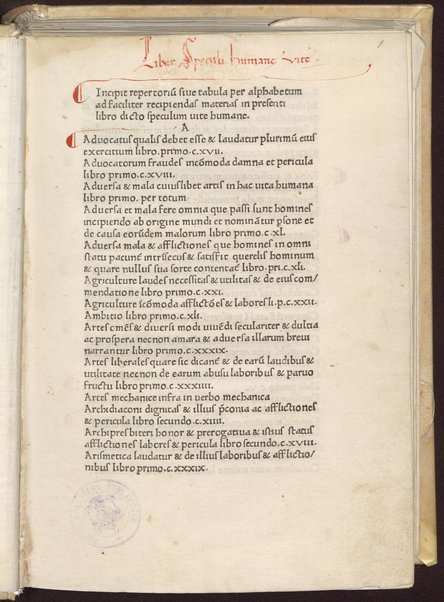 Liber Speculi humane vite
1
Incipit repertoriū siue tabula per alphabetum
ad faciliter recipiendas materias in presenti
libro dicto speculum uite humane.
A
Aduocatus qualis debet esse & laudatur plurimū eius
exercitium libro. primo. c. xvii.
Aduocatorum fraudes incōmoda damna et pericula
libro primo. c. xviii.
Aduersa & mala cuiuslibet artis in hac uita humana
libro primo. per totum
Aduersa et mala fere omnia que passi sunt homines
incipiendo ab origine mundi et nominātur psone et
de causa eorūdem malorum libro primo. c. xl.
Aduersa mala & afflictiones que homines in omni
statu paciunt intrisecus & satisfit querelis hominum
& quare nullus sua sorte contentat libro. pri. c. xli.
Agriculture laudes necessitas & utilitas & de eius com/
mendatione libro primo. c. xxi.
Agriculture īcōmoda afflictōes & labores li. p. c. xxii.
Ambitio libro primo. c. xli.
Artes om̄es & diuersi modi uiuēdi seculariter & dultia
ac prospera necnon amara & aduersa illarum breui
narrantur libro primo. c. xxxix.
Artes liberales quare sic dicant̄ & de earū laudibus &
utilitate necnon de earum abusu laboribus & paruo
fructu libro primo. c. xxxiiii.
Artes mechanice infra in uerbo mechanica
Archidiaconi dignitas & illius p̄conia ac afflictiones
& pericula libro secundo. c. xiii.
Archipresbiteri honor & prerogatiua & istius status
afflictiones labores & pericula libro secundo. c. xviii.
Arismetica laudatur & de illius laboribus & afflictio/
nibus libro primo. c. xxxix.